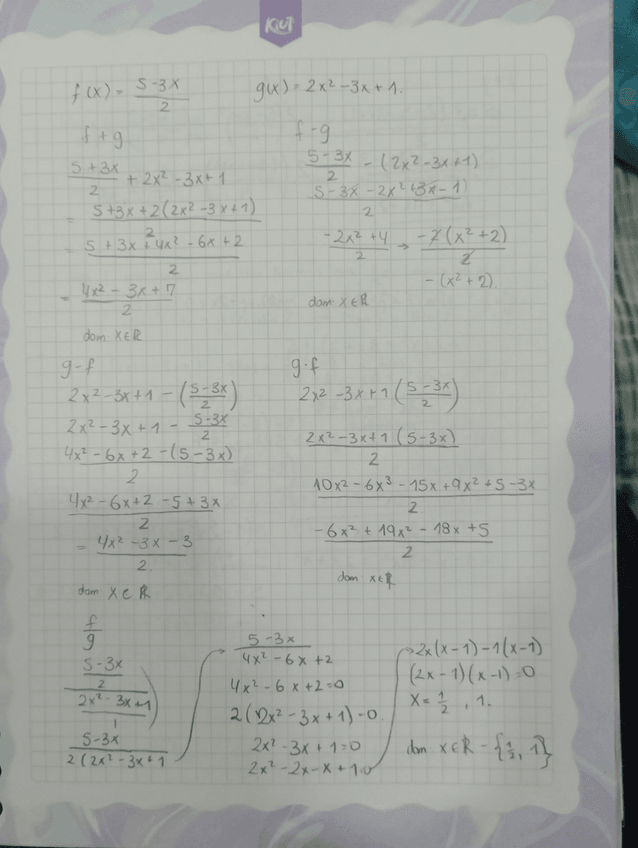 KIUT
f(x) = (5-3x)/2    g(x) = 2x² - 3x + 1.
f + g
(5+3x)/2 + 2x² - 3x + 1
= (5+3x+2(2x² - 3x + 1))/2
= (5 + 3x + 4x² - 6x + 2)/2
= (4x² - 3x + 7)/2
dom x∈ℝ
f - g
(5-3x)/2 - (2x² - 3x + 1)
(5-3x - 2x² + 3x - 1)/2
(-2x² + 4)/2 → (-2(x² + 2))/2
- (x² + 2)
dom x∈ℝ
g - f
2x² - 3x + 1 - ((5-3x)/2)
2x² - 3x + 1 - (5-3x)/2
(4x² - 6x + 2 - (5-3x))/2
(4x² - 6x + 2 - 5 + 3x)/2
= (4x² - 3x - 3)/2
dom x∈ℝ
g·f
2x² - 3x + 1 ((5-3x)/2)
(2x² - 3x + 1 (5-3x))/2
(10x² - 6x³ - 15x + 9x² + 5 - 3x)/2
(-6x² + 19x² - 18x + 5)/2
dom x∈ℝ
f/g
((5-3x)/2)/((2x² - 3x + 1)/1)
(5-3x)/(2(2x² - 3x + 1
(5-3x)/(4x² - 6x + 2)
4x² - 6x + 2 = 0
2(2x² - 3x + 1) = 0
2x² - 3x + 1 = 0
2x² - 2x - x + 1 = 0
2x(x-1) - 1(x-1)
(2x-1)(x-1) = 0
x = 1/2, 1.
dom x∈ℝ - {1/2, 1}